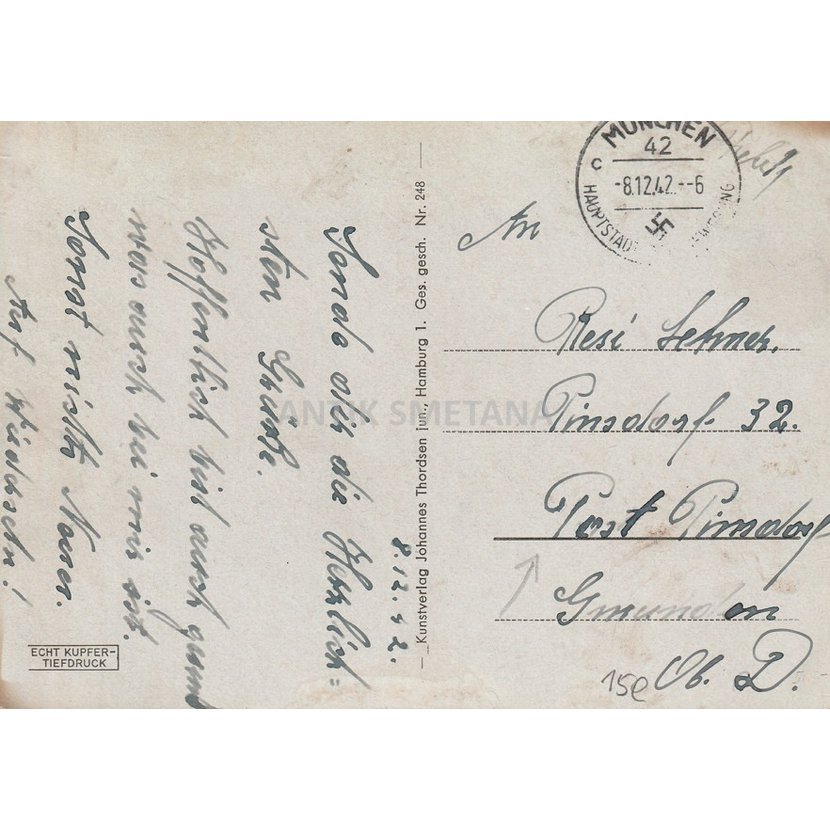 MÜNCHEN
42
c
-8.12.42.--6
HAUPTSTADT
An
Resi
Pinsdorf 32.
Post Pinsdorf
Gmunden
Ob. D.
8.12.42.
Sende dir die Herzlich=
sten Grüße.
Hoffentlich bist auch gesund
was auch bei mir ist.
Sonst nichts Neues.
Auf Wiedersehn!
Kunstverlag Johannes Thordsen jun., Hamburg 1. Ges. gesch. Nr. 248
ECHT KUPFER-
TIEFDRUCK
ANTIK SMETANA